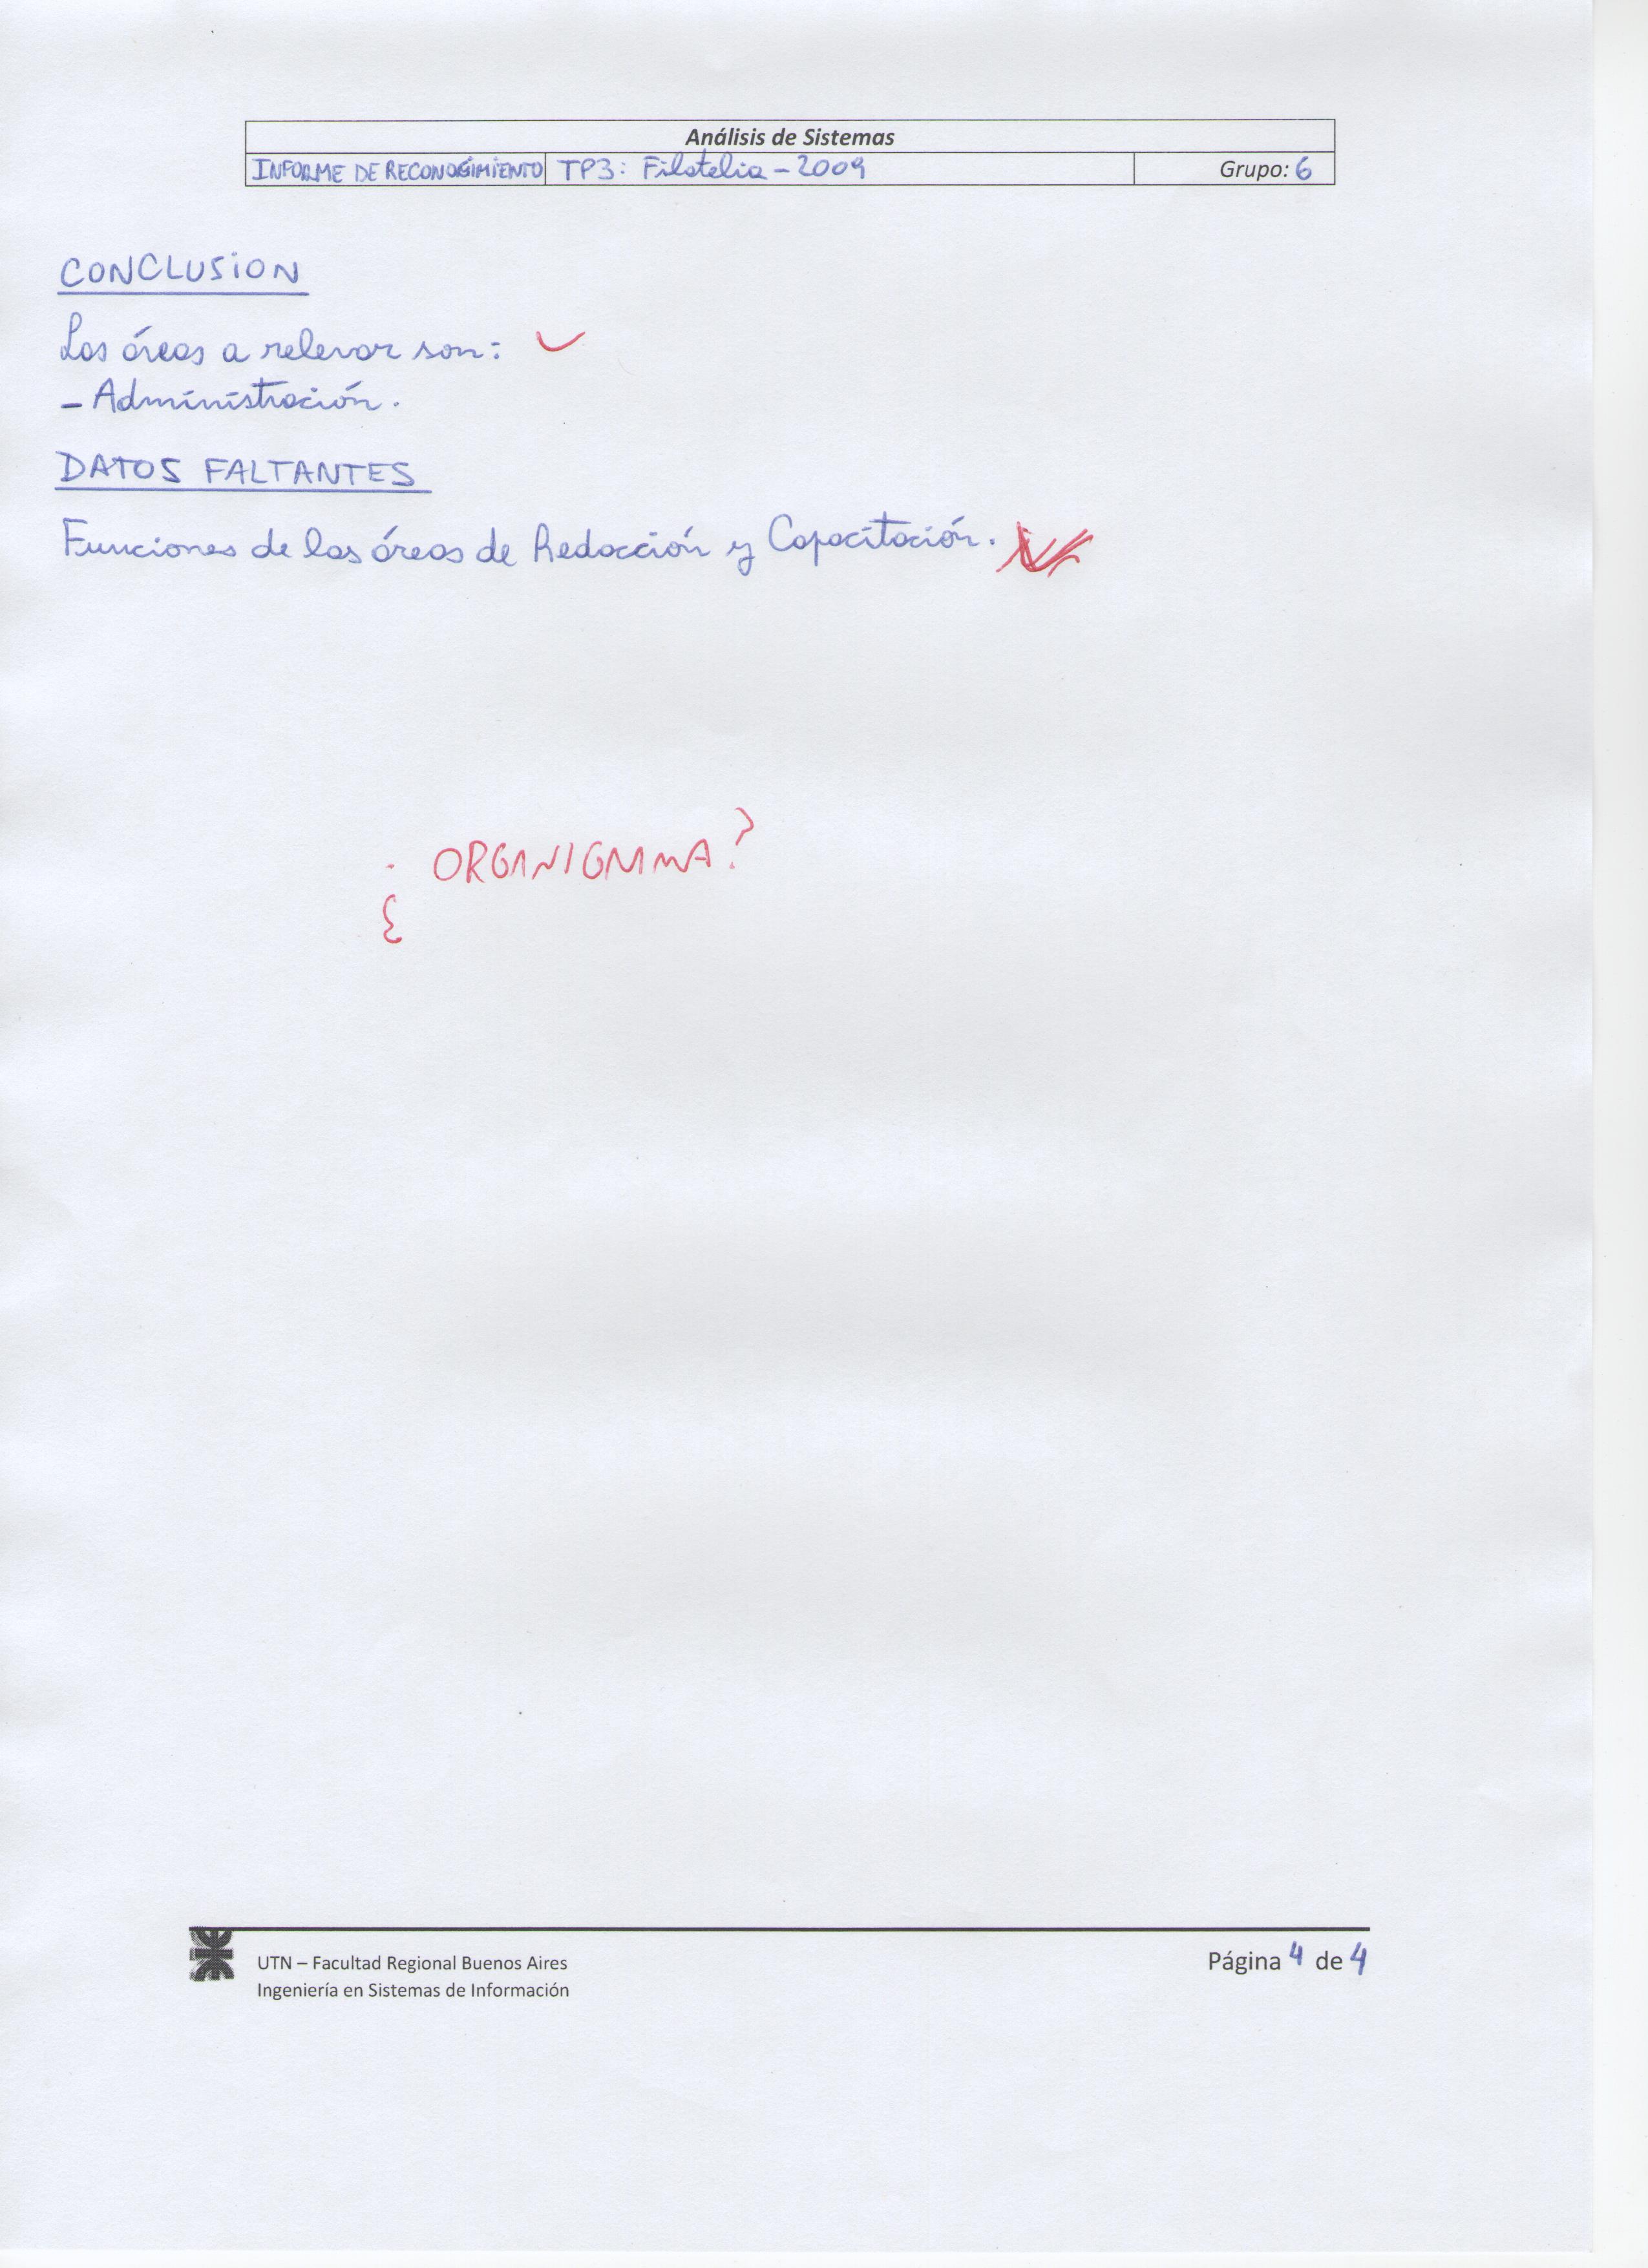 Análisis de Sistemas
INFORME DE RECONOCIMIENTO TP3: Filatelia - 2009 Grupo: 6
CONCLUSION
Las áreas a relevar son:
- Administración.
DATOS FALTANTES
Funciones de las áreas de Redacción y Capacitación.
¿ ORGANIGRAMA?
UTN – Facultad Regional Buenos Aires Página 4 de 4
Ingeniería en Sistemas de Información